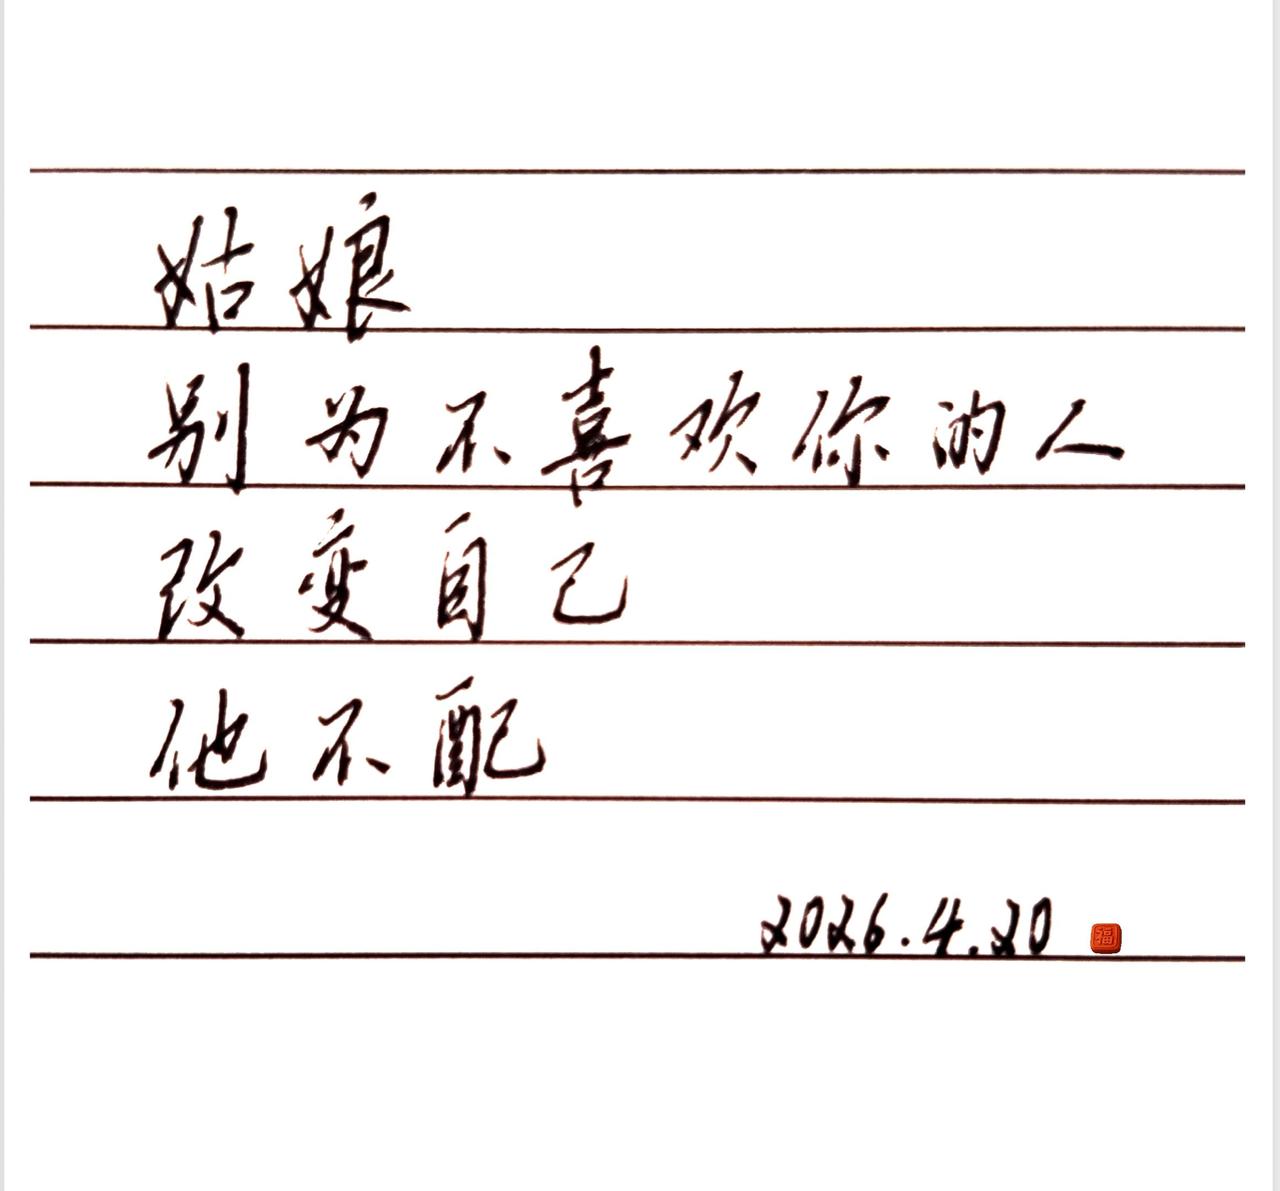 姑娘
别为不喜欢你的人
改变自己
他不配
2026.4.20 福